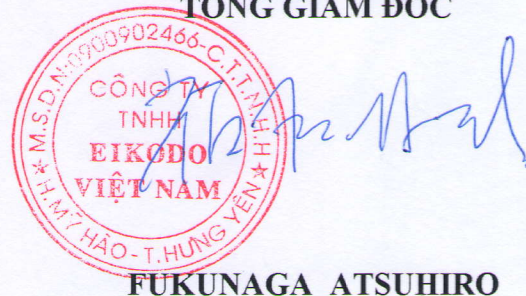 TỔNG GIÁM ĐỐC
M.S.D.N:0900902466-C.T.T.N.H.H
CÔNG TY
TNHH
EIKODO
VIỆT NAM
H.MỸ HÀO-T.HƯNG YÊN
FUKUNAGA ATSUHIRO